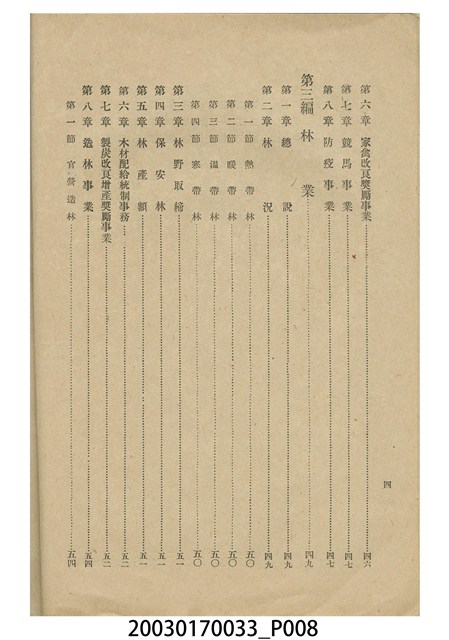 第六章 家禽改良獎勵事業…………四六
第七章 競馬事業…………四七
第八章 防疫事業…………四七
第三編 林業…………四九
第一章 總說…………四九
第二章 林況…………四九
第一節 熱帶林…………五〇
第二節 暖帶林…………五〇
第三節 溫帶林…………五〇
第四節 寒帶林…………五〇
第三章 林野取締…………五一
第四章 保安林…………五一
第五章 林產額…………五一
第六章 木材配給統制事務…………五二
第七章 製炭改良增產獎勵事業…………五二
第八章 造林事業…………五四
第一節 官營造林…………五四
四
20030170033_P008